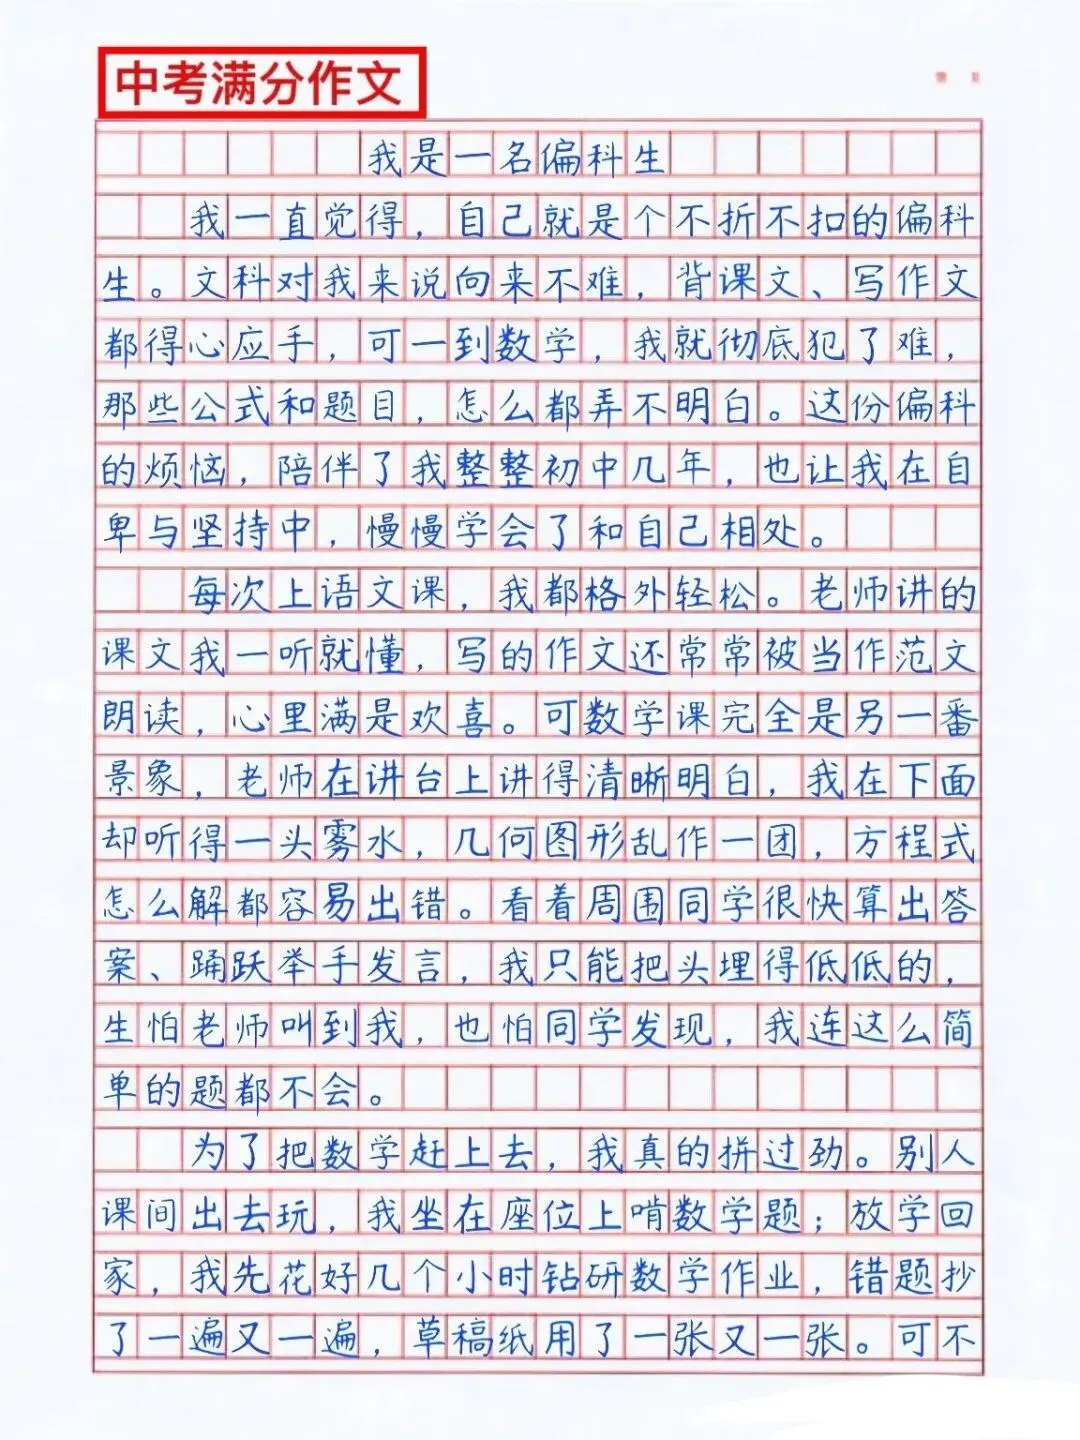 中考满分作文
我是一名偏科生
我一直觉得，自己就是个不折不扣的偏科
生。文科对我来说向来不难，背课文、写作文
都得心应手，可一到数学，我就彻底犯了难，
那些公式和题目，怎么都弄不明白。这份偏科
的烦恼，陪伴了我整整初中几年，也让我在自
卑与坚持中，慢慢学会了和自己相处。
每次上语文课，我都格外轻松。老师讲的
课文我一听就懂，写的作文还常常被当作范文
朗读，心里满是欢喜。可数学课完全是另一番
景象，老师在讲台上讲得清晰明白，我在下面
却听得一头雾水，几何图形乱作一团，方程式
怎么解都容易出错。看着周围同学很快算出答
案、踊跃举手发言，我只能把头埋得低低的，
生怕老师叫到我，也怕同学发现，我连这么简
单的题都不会。
为了把数学赶上去，我真的拼过劲。别人
课间出去玩，我坐在座位上啃数学题；放学回
家，我先花好几个小时钻研数学作业，错题抄
了一遍又一遍，草稿纸用了一张又一张。可不